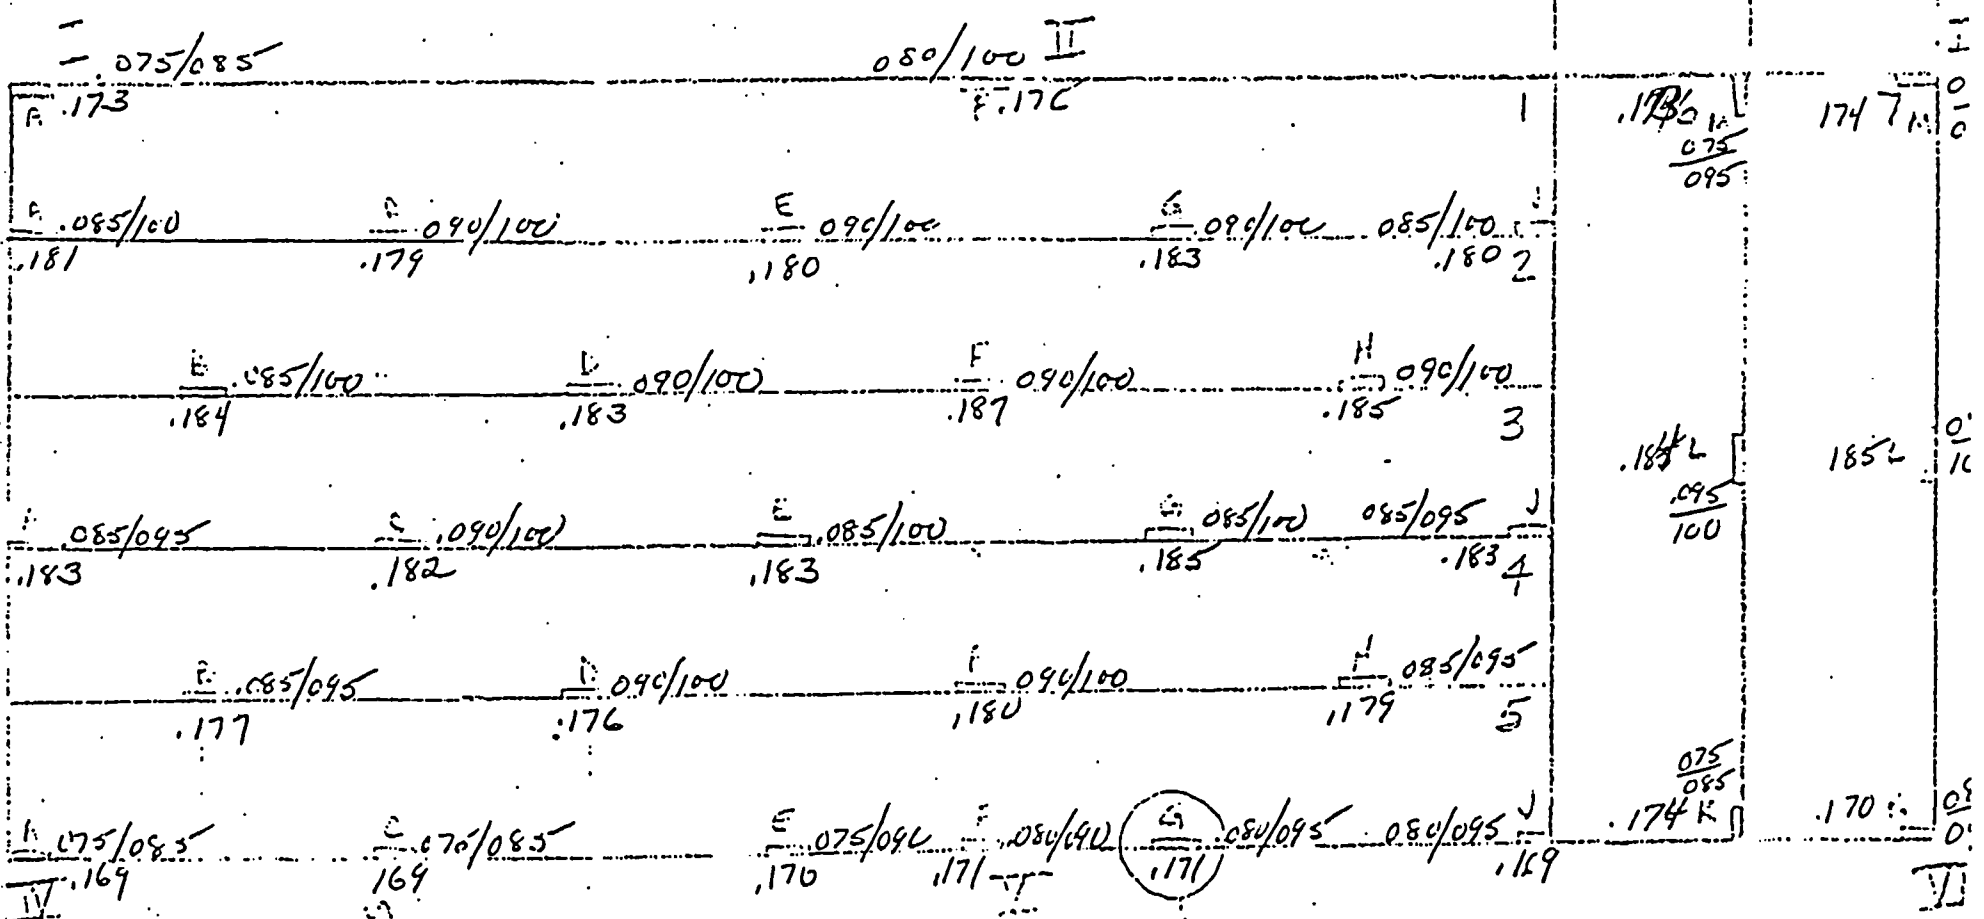 .075/085 080/100 II
A .173 F .176 1 174 M
075
095
A .085/100 090/100 E 090/100 G 090/100 085/100 J
.181 .179 .180 .183 .180 2
B .085/100 D 090/100 F 090/100 H 090/100
.184 .183 .187 .185 3
L 185 L
.095
100
.085/095 C .090/100 E .085/100 G 085/100 085/095 J
.183 .182 .183 .185 .183 4
B .085/095 D 090/100 F 090/100 H 085/095
.177 .176 .180 .179 5
075
085
.174 K .170
A 075/085 C 075/085 E 075/090 F .080/090 G .080/095 080/095 J
.169 169 .170 .171 .171 .169
IV V VI